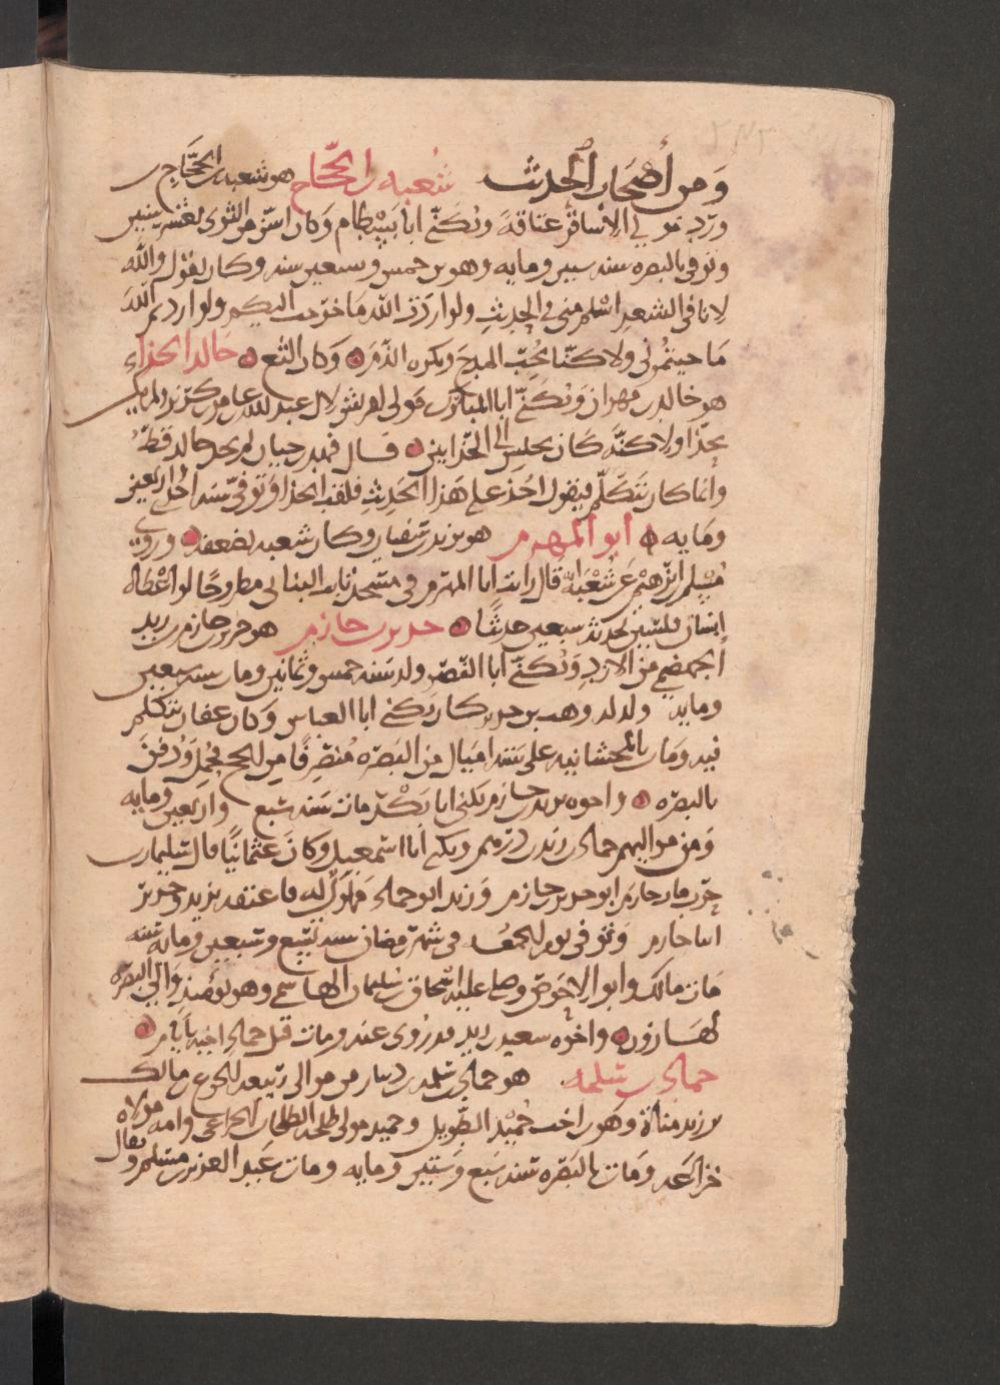 ومن أصحاب الحديث شعبة بن الحجاج هو شعبة بن الحجاج بن
ورد مولى الاشاقر عتاقة ويكنى أبا بسطام وكان اسن من الثوري بعشر سنين
وتوفي بالبصرة سنة ستين وماية وهو بن خمس وسبعين سنة وكان يقول والله
لانا في الشعر اسلم مني في الحديث ولو اردت الله ما خرجت اليكم ولو اردتم الله
ما جيتموني ولاكنا نحب المدح ونكره الذم وكان الثغ خالد الحذاء
هو خالد بن مهران ويكنى ابا المبارك مولى لقريش لال عبد الله بن عامر بن كريز ولم يكن
بحذا ولاكنه كان يجلس الى الحذايين قال فهد بن حيان لم يحذ خالد قط
وانما كان يتكلم فيقول احذ على هذا الحديث فلقب الحذا وتوفي سنة احدى اربعين
وماية أبو المهزم هو يزيد بن سفيان وكان شعبة يضعفه وروى
مسلم بن ابرهيم عن شعبة قال رايت ابا المهزم في مسجد ثابت البناني مطروحا لو اعطاه
انسان فلسين لحدثه سبعين حديثا جرير بن حازم هو جرير بن حازم بن زيد
الجهضمي من الازد ويكنى أبا النضر ولد سنة خمس وثمانين ومات سنة سبعين
وماية ولد له وهب بن جرير كان يكنى ابا العباس وكان عفان يتكلم
فيه ومات بالمنجشانية على ستة اميال من البصرة منصرفا من الحج فحمل ودفن
بالبصرة واخوه يزيد بن حازم يكنى ابا بكر مات سنة سبع واربعين وماية
ومن مواليهم حماد بن زيد بن درهم ويكنى أبا اسمعيل وكان عثمانيا قال سليمان بن
حرب مات حازم ابو جرير بن حازم وزيد ابو حماد مملوك له فاعتقه يزيد وجرير
ابنا حازم وتوفي يوم الجمعة في شهر رمضان سنة تسع وسبعين وماية سنة
مات مالك وابو الاحوص وصلى عليه اسحاق بن سليمان الهاشمي وهو يومئذ والي البصرة
لهارون واخوه سعيد بن زيد قد روي عنه ومات قبل حماد اخيه بايام
حماد بن سلمة هو حماد بن سلمة بن دينار من موالي ربيعة الجوع بن مالك
بن زيد مناة وهو بن اخت حميد الطويل وحميد مولى طلحة الطلحات الخزاعي وامه مولاة
خزاعة ومات بالبصرة سنة سبع وستين وماية ومات عبد العزيز بن مسلم ويقال